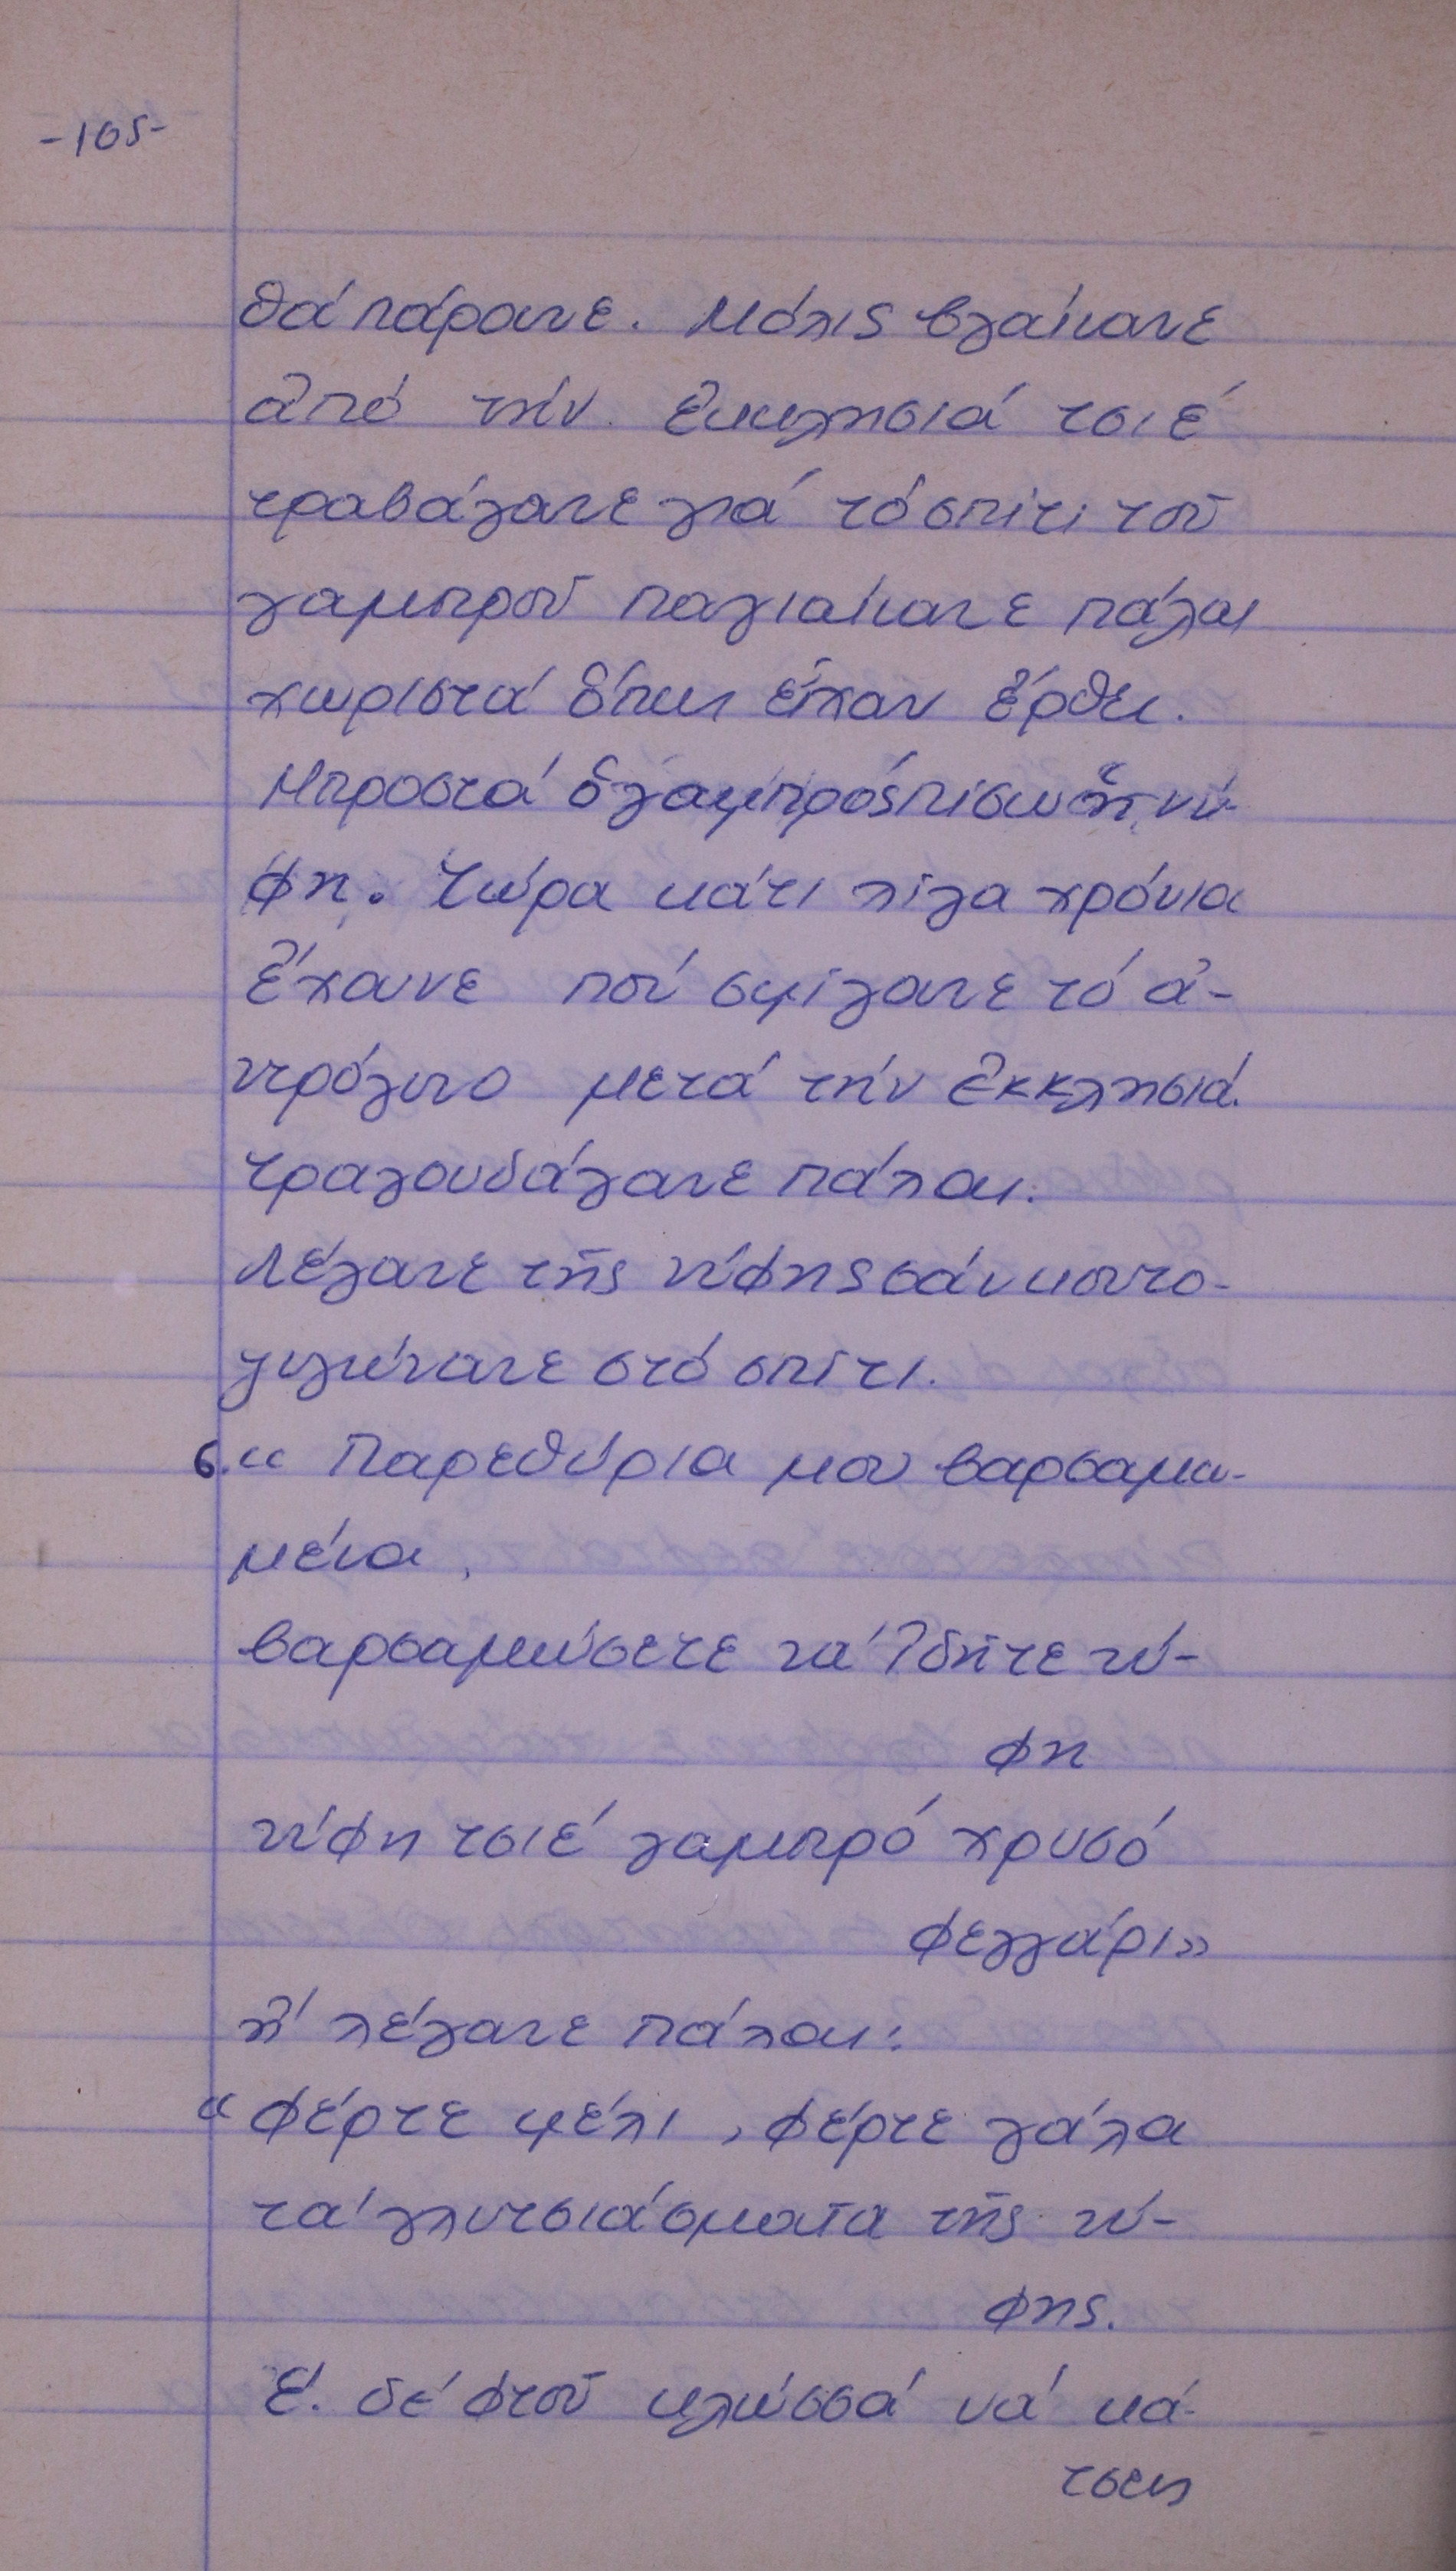 -105-
θά πάρουνε. Μόλις βγαίνανε
ἀπό τήν ἐκκλησιά τσιέ
τραβάγανε γιά τό σπίτι τοῦ
γαμπροῦ παγιαίνανε πάλαι
χωριστά ὅπως εἶχαν ἔρθει.
Μπροστά ὁ γαμπρός πίσω ἡ νύ-
φη. Τώρα κάτι λίγα χρόνια
ἔχουνε πού σμίγανε τό ἀ-
ντρόγυνο μετά τήν ἐκκλησιά.
Τραγουδάγανε πάλαι.
Λέγανε τῆς νύφης σάν κοντο-
γυγώνανε στό σπίτι.
6. « Παρεθύρια μου βαρσαμω-
μένα,
βαρσαμώσετε νά ἰδῆτε νύ-
φη
νύφη τσιέ γαμπρό χρυσό
φεγγάρι»
ἤ λέγανε πάλαι:
« φέρτε μέλι, φέρτε γάλα
τά γλυτσιάσματα τῆς νύ-
φης.
Ἐ. δέ φτοῦ κλώσσά νά κά-
τσεις